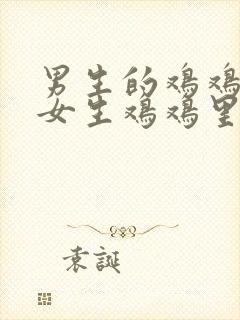 男生的鸡鸡
女生鸡鸡里
袁誕